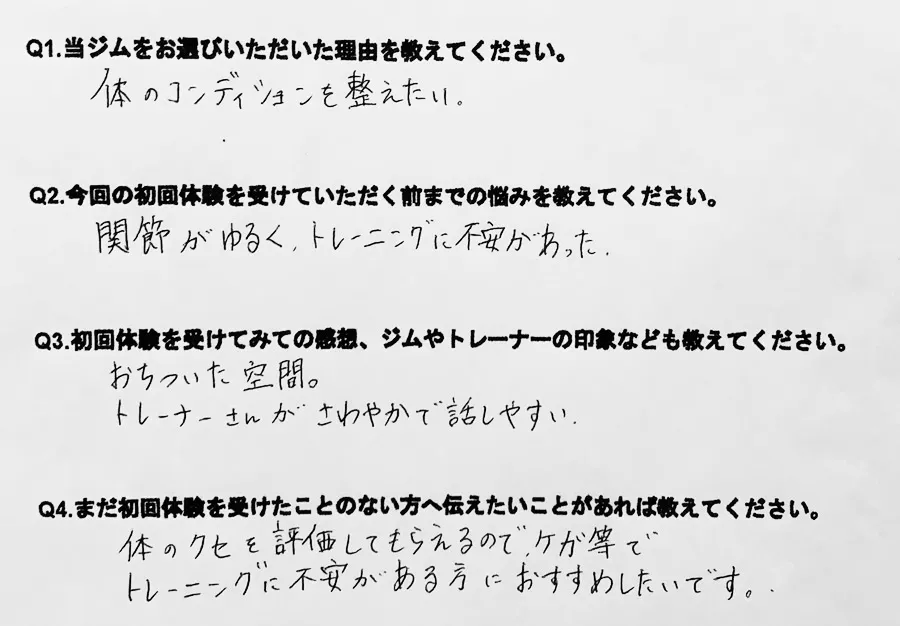 Q1.当ジムをお選びいただいた理由を教えてください。
体のコンディションを整えたい。
Q2.今回の初回体験を受けていただく前までの悩みを教えてください。
関節がゆるく、トレーニングに不安があった.
Q3.初回体験を受けてみての感想、ジムやトレーナーの印象なども教えてください。
おちついた空間。
トレーナーさんがさわやかで話しやすい.
Q4.まだ初回体験を受けたことのない方へ伝えたいことがあれば教えてください。
体のクセを評価してもらえるので、ケガ等で
トレーニングに不安がある方におすすめしたいです。